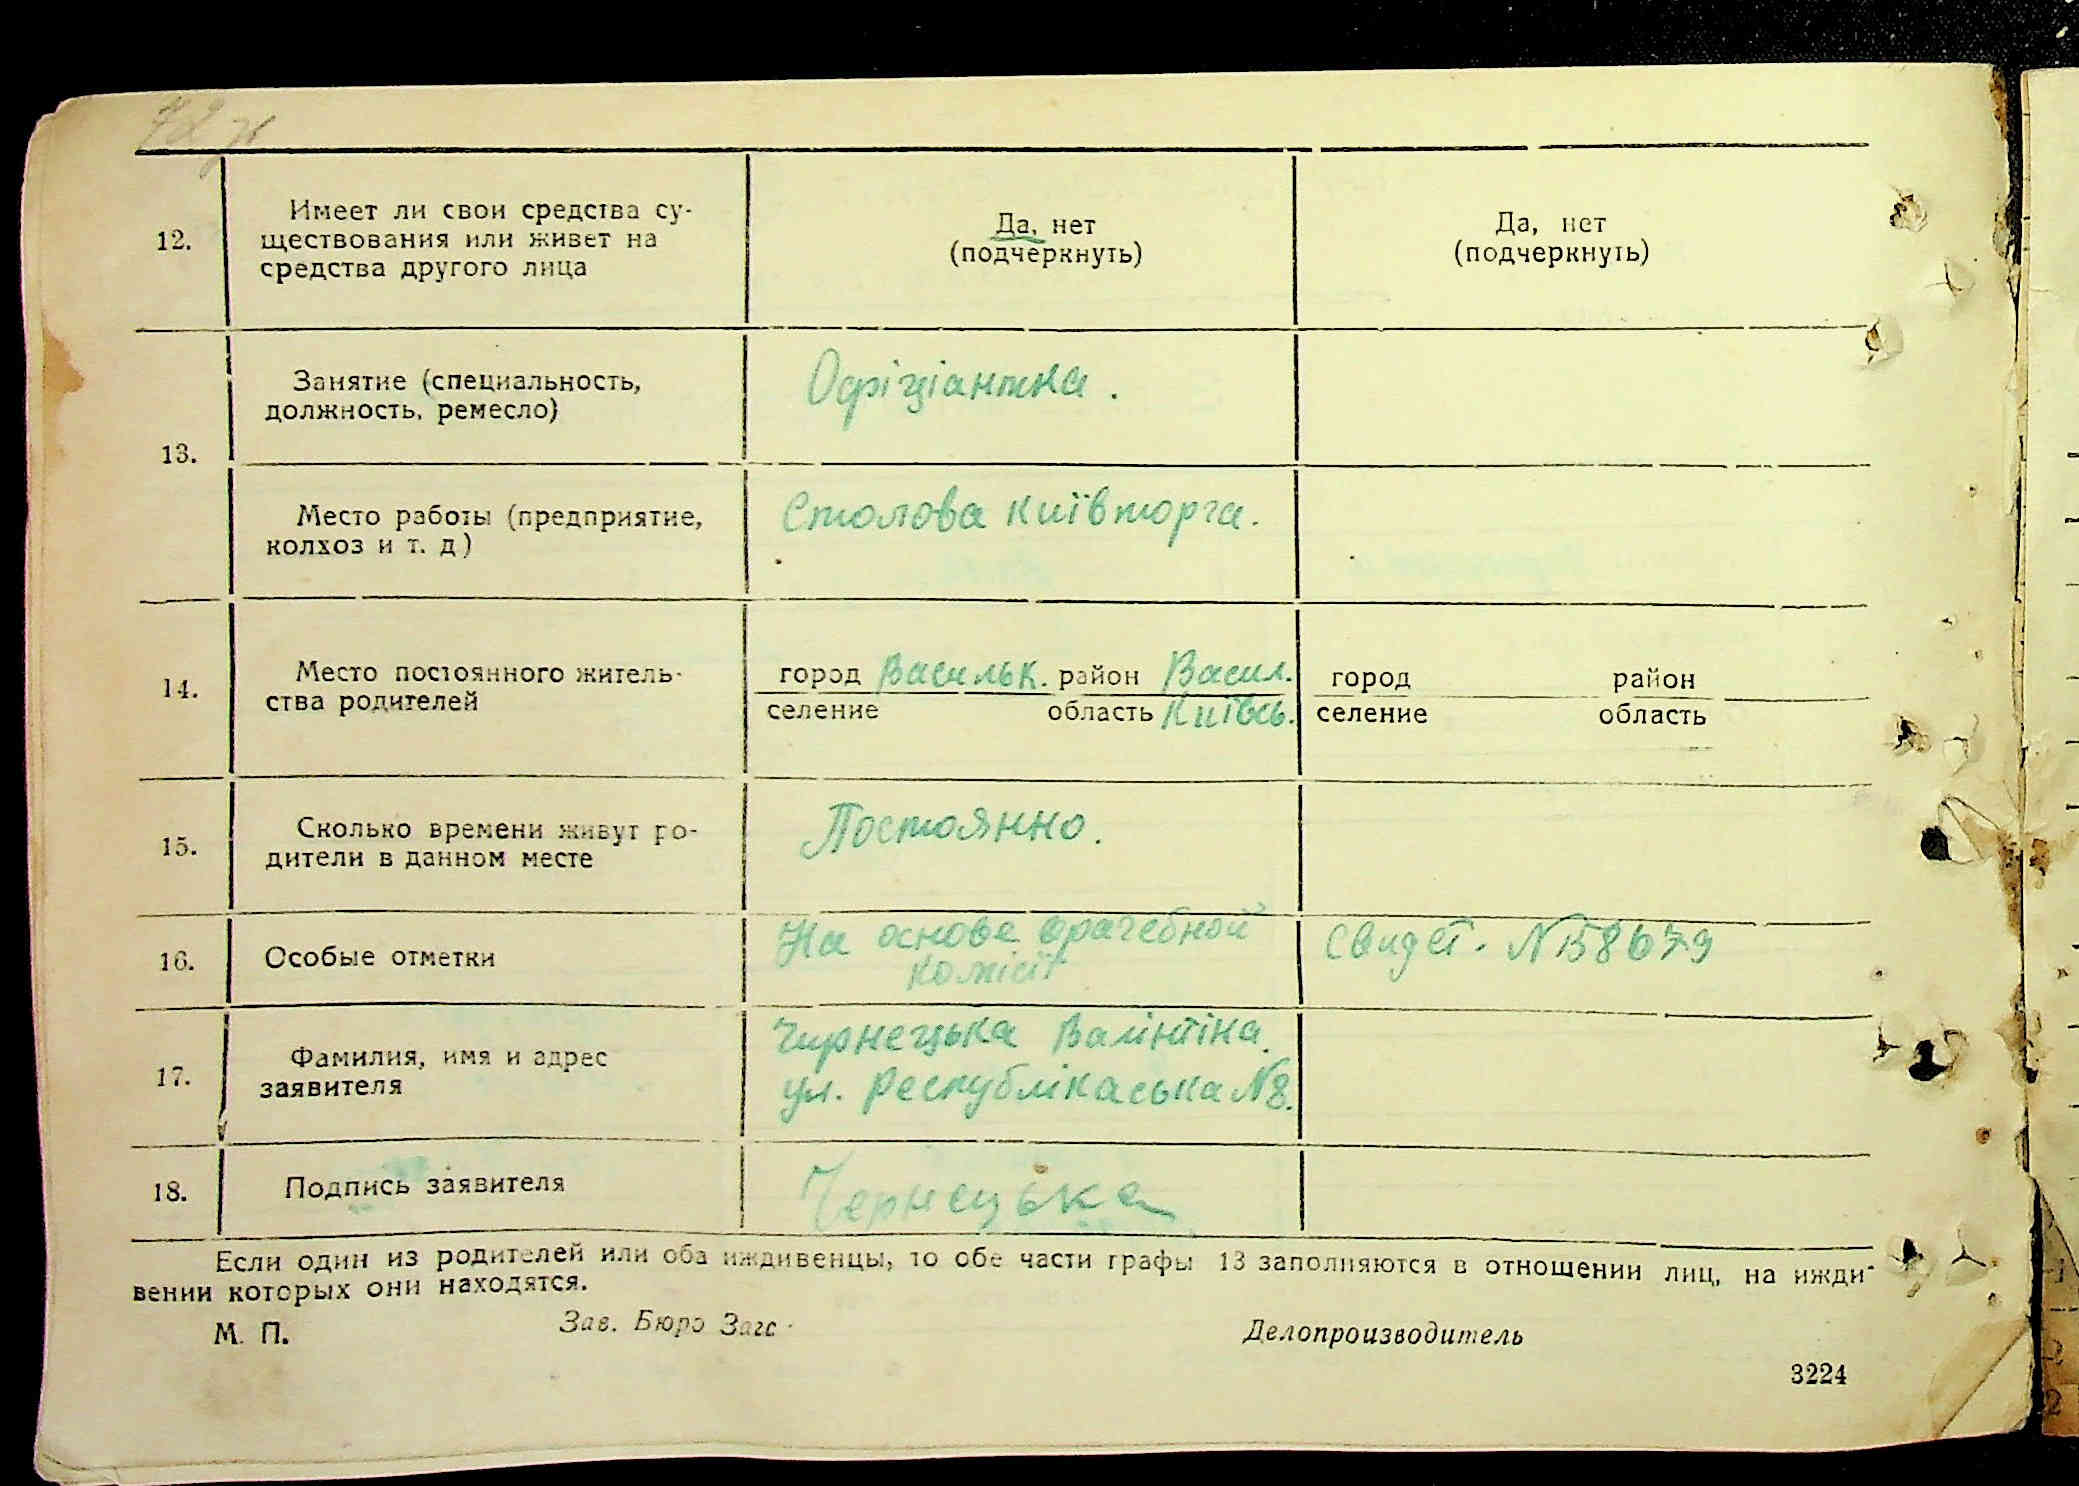 12.
Имеет ли свои средства су-
ществования или живет на
средства другого лица
Да, нет
(подчеркнуть)
Да, нет
(подчеркнуть)
13.
Занятие (специальность,
должность, ремесло)
Офіціантка.
Место работы (предприятие,
колхоз и т. д)
Столова Київторга.
14.
Место постоянного житель-
ства родителей
город Васильк. район Васил.
селение область Київсь.
город район
селение область
15.
Сколько времени живут ро-
дители в данном месте
Постоянно.
16.
Особые отметки
На основе врачебной
комісії
Свидет. №
17.
Фамилия, имя и адрес
заявителя
Чирнецька Валінтіна.
ул. Республікаська №8.
18.
Подпись заявителя
Чернецька
Если один из родителей или оба иждивенцы, то обе части графы 13 заполняются в отношении лиц, на ижди-
вении которых они находятся.
М. П. Зав. Бюро Загс Делопроизводитель
3224